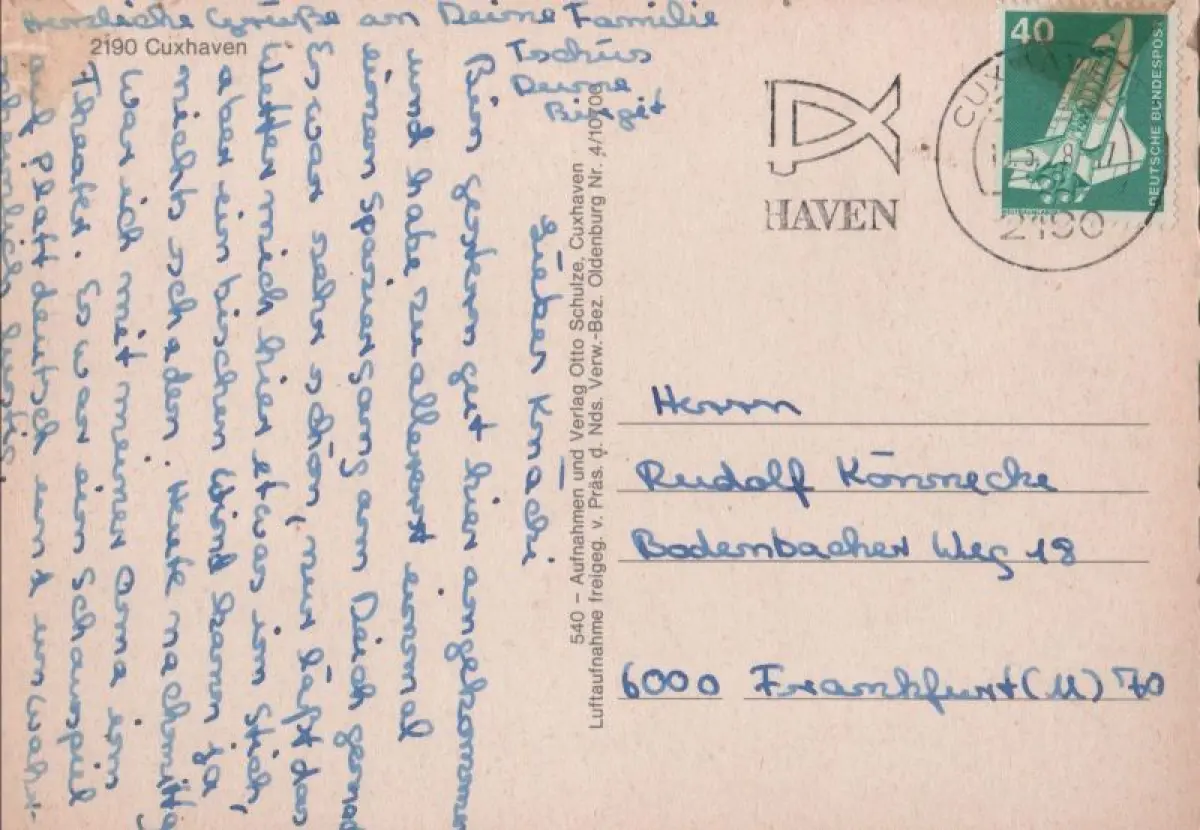 2190 Cuxhaven
Lieber Knacki
Bin gestern gut hier angekommen
und habe zuallererst einmal
einen Spaziergang am Deich gemacht
Es war sehr schön, nur läßt das
Wetter mich hier etwas im Stich,
aber ein bischen Wind kann ja
nichts schaden. Heute nachmittag
war ich mit meiner Oma im
Theater. Es war ein Schauspiel
auf Plattdeutsch und unwahr-
scheinlich lustig.
Herzliche Grüße an Deine Familie
Tschüs
Deine
Birgit
540 – Aufnahmen und Verlag Otto Schulze, Cuxhaven
Luftaufnahme freigeg. v. Präs. d. Nds. Verw.-Bez. Oldenburg Nr. 4/10700
HAVEN
CUXHAVEN
2190
40
DEUTSCHE BUNDESPOST
Herrn
Rudolf Könnecke
Bodenbacher Weg 18
6000 Frankfurt (M) 70